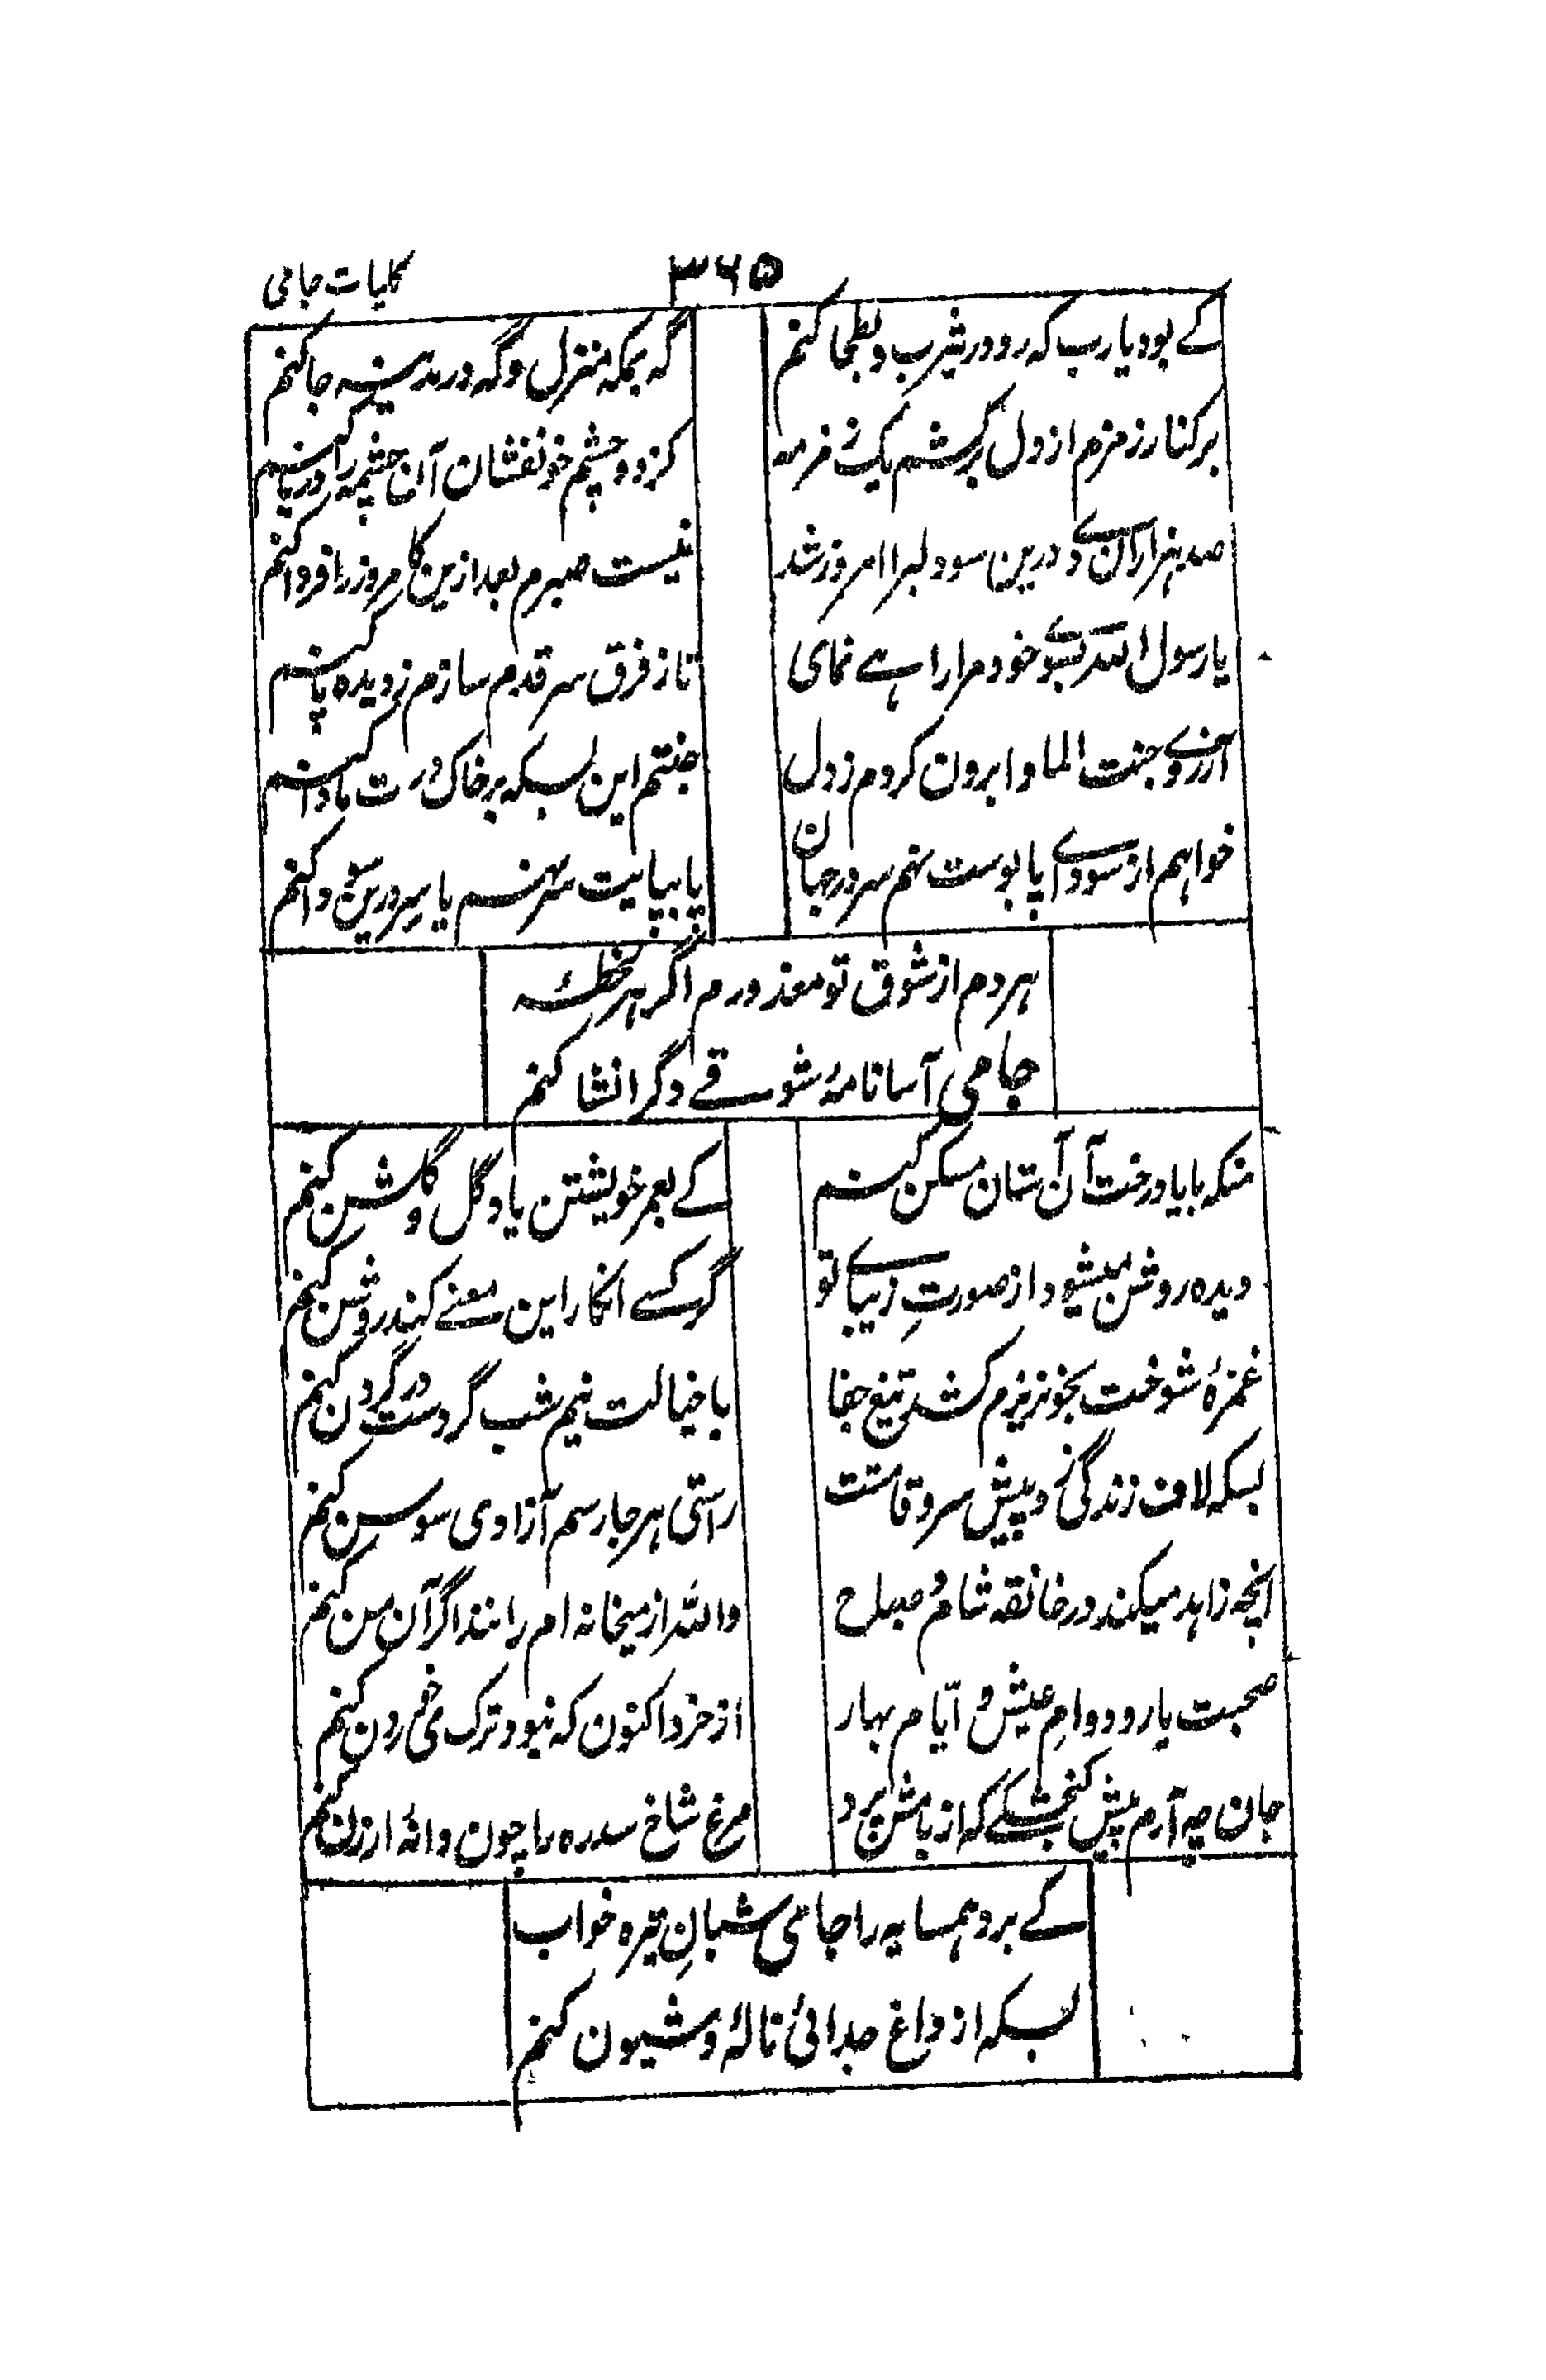 کلیات جامی
۳۶۵
کے بود یارب کہ رو در یثرب و بطحا کنم
گہ بمکہ منزل و گہ در مدینہ جا کنم
بر کنار زمزم از دل برکشم یک زمزمہ
کز دو چشم خونفشان آن چشمہ را دریا کنم
صد ہزاران دے درین سودا مرا امروز شد
نیست صبرم بعد ازین کامروز را فردا کنم
یا رسول اللہ بسوے خود مرا راہے نمای
تا ز فرق سر قدم سازم ز دیدہ پا کنم
آرزوے جنت الماوا برون کردم ز دل
جنتم این بسکہ بر خاک درت ماوا کنم
خواہم از سوداے پابوست نہم سر در جہان
یا بپایت سر نہم یا سر درین سودا کنم
ہر دم از شوق تو معذورم اگر ہر لحظہ
جامی آسا نامۂ شوقے دگر انشا کنم
منکہ با یاد رخت آن آستان مسکن کنم
کے بعمر خویشتن یاد گل و گلشن کنم
دیدہ روشن میشود از صورتِ زیباے تو
گر کسے انکار این معنے کند روشن کنم
غمزۂ شوخت بخونریزم کشد تیغ جفا
با خیالت نیم شب گر دست در گردن کنم
بسکہ لاف زندگی زد پیش سرو قامتت
راستی ہر جا رسم آزادی سوسن کنم
انچہ زاہد میکند در خانقہ شام و صباح
واللہ از میخانہ ام رانند اگر آن من کنم
صحبت یار و دوامِ عیش و ایّام بہار
از خرد اکنون کہ نبود ترک می خوردن کنم
جان چہ آرم پیش گنجشکے کہ از بامش پرد
مرغ شاخ سدرہ را چون دانۂ ارزن کنم
کے برد ہمسایہ را جامی شبانِ تیرہ خواب
بسکہ از داغ جدائی نالۂ و شیون کنم